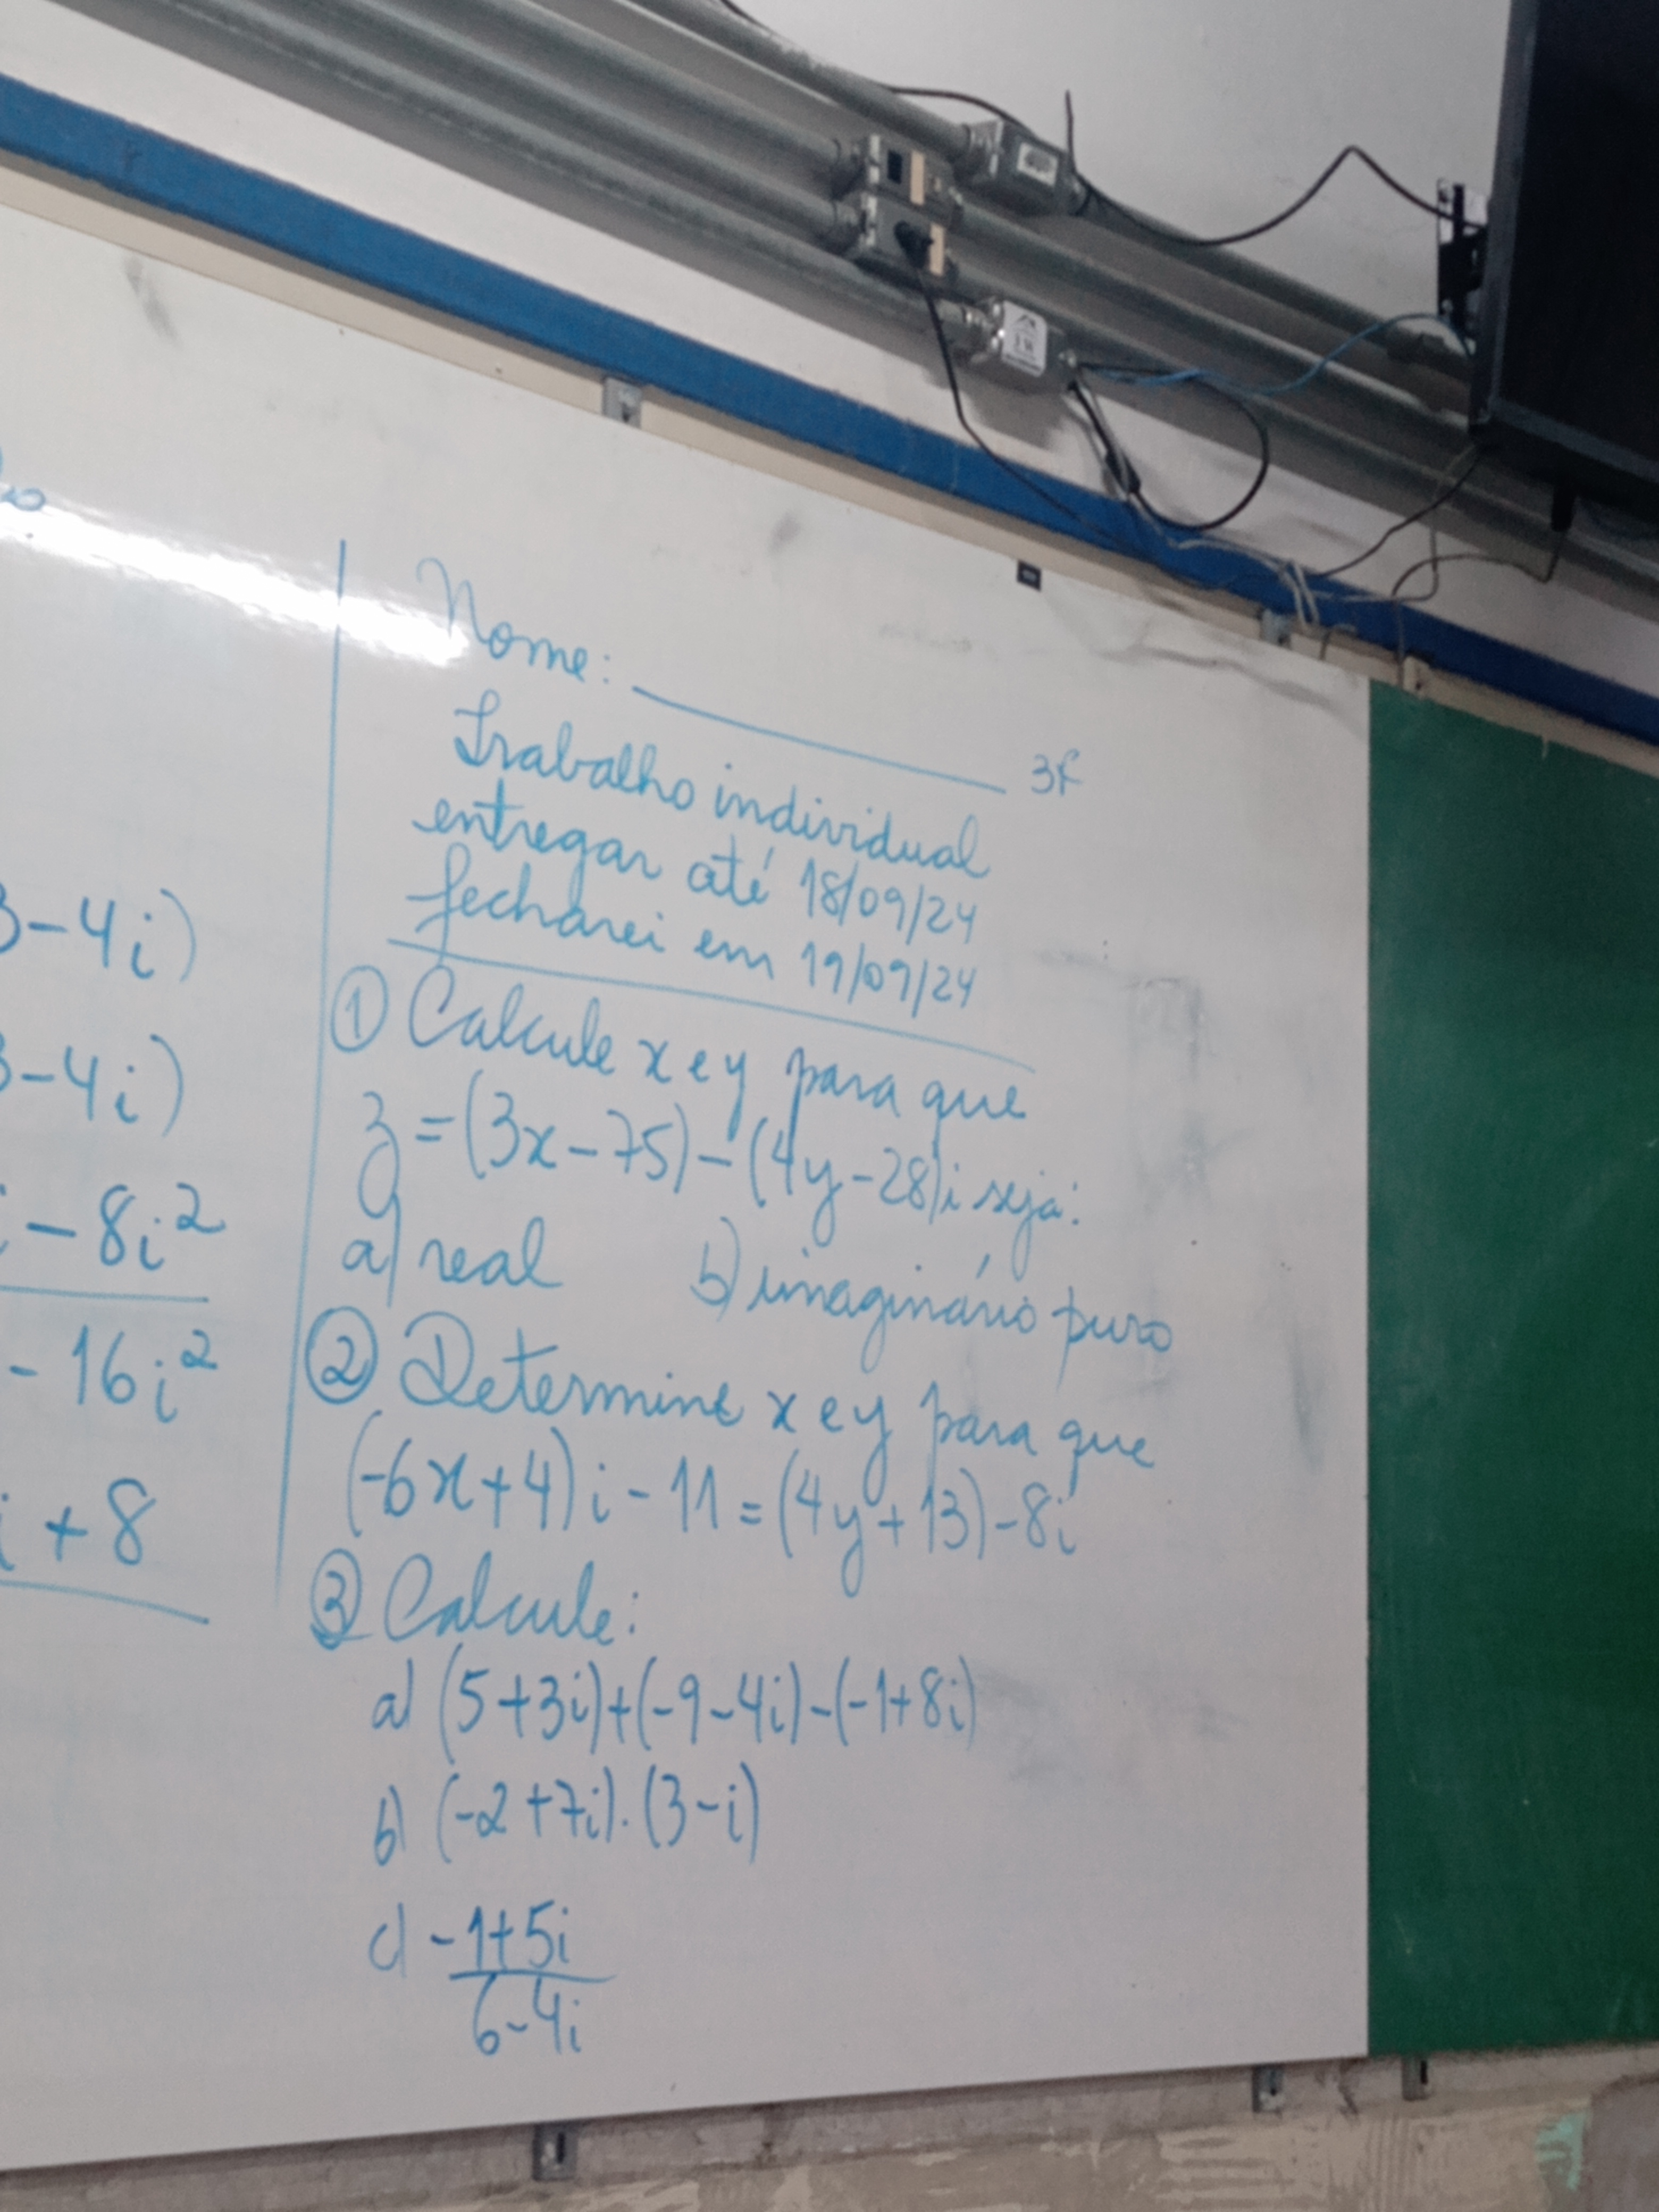 3-4i)
3-4i)
- 8i²
- 16i²
i + 8
Nome: ____________ 3F
Trabalho individual
entregar até 18/09/24
fecharei em 19/09/24
① Calcule x e y para que
z = (3x - 75) - (4y - 28)i seja:
a) real b) imaginário puro
② Determine x e y para que
(-6x + 4)i - 11 = (4y + 13) - 8i
③ Calcule:
a) (5 + 3i) + (-9 - 4i) - (-1 + 8i)
b) (-2 + 7i) . (3 - i)
c) -1 + 5i
6 - 4i